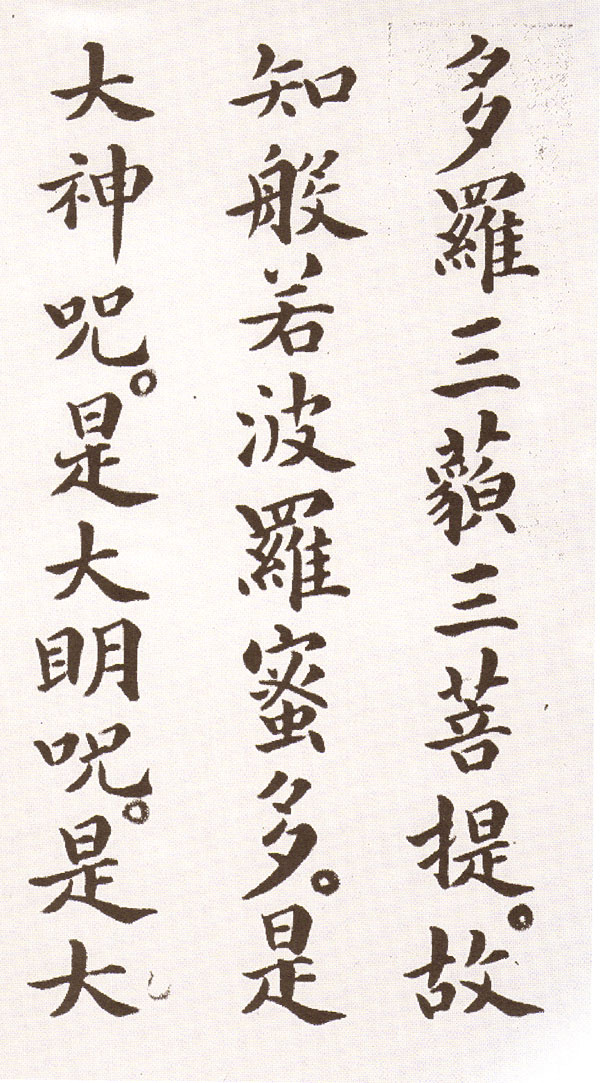 多羅三藐三菩提。故
知般若波羅蜜多。是
大神呪。是大明呪。是大